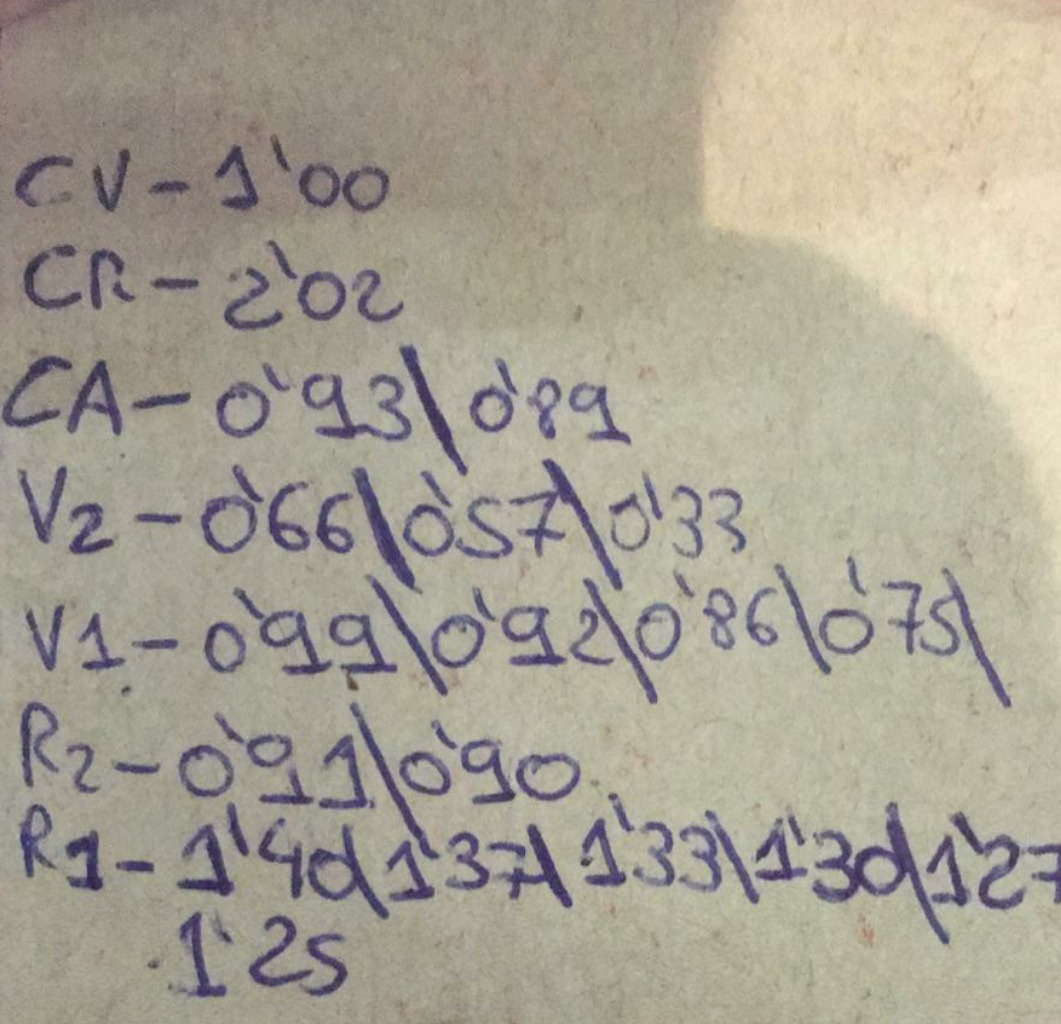 CV - 1'00
CR - 2'02
CA - 0'93\0'89
V2 - 0'66\0'57\0'33
V1 - 0'99\0'92\0'86\0'75\
R2 - 0'91\0'90
R1 - 1'40\1'37\1'33\1'30\1'27
1'25